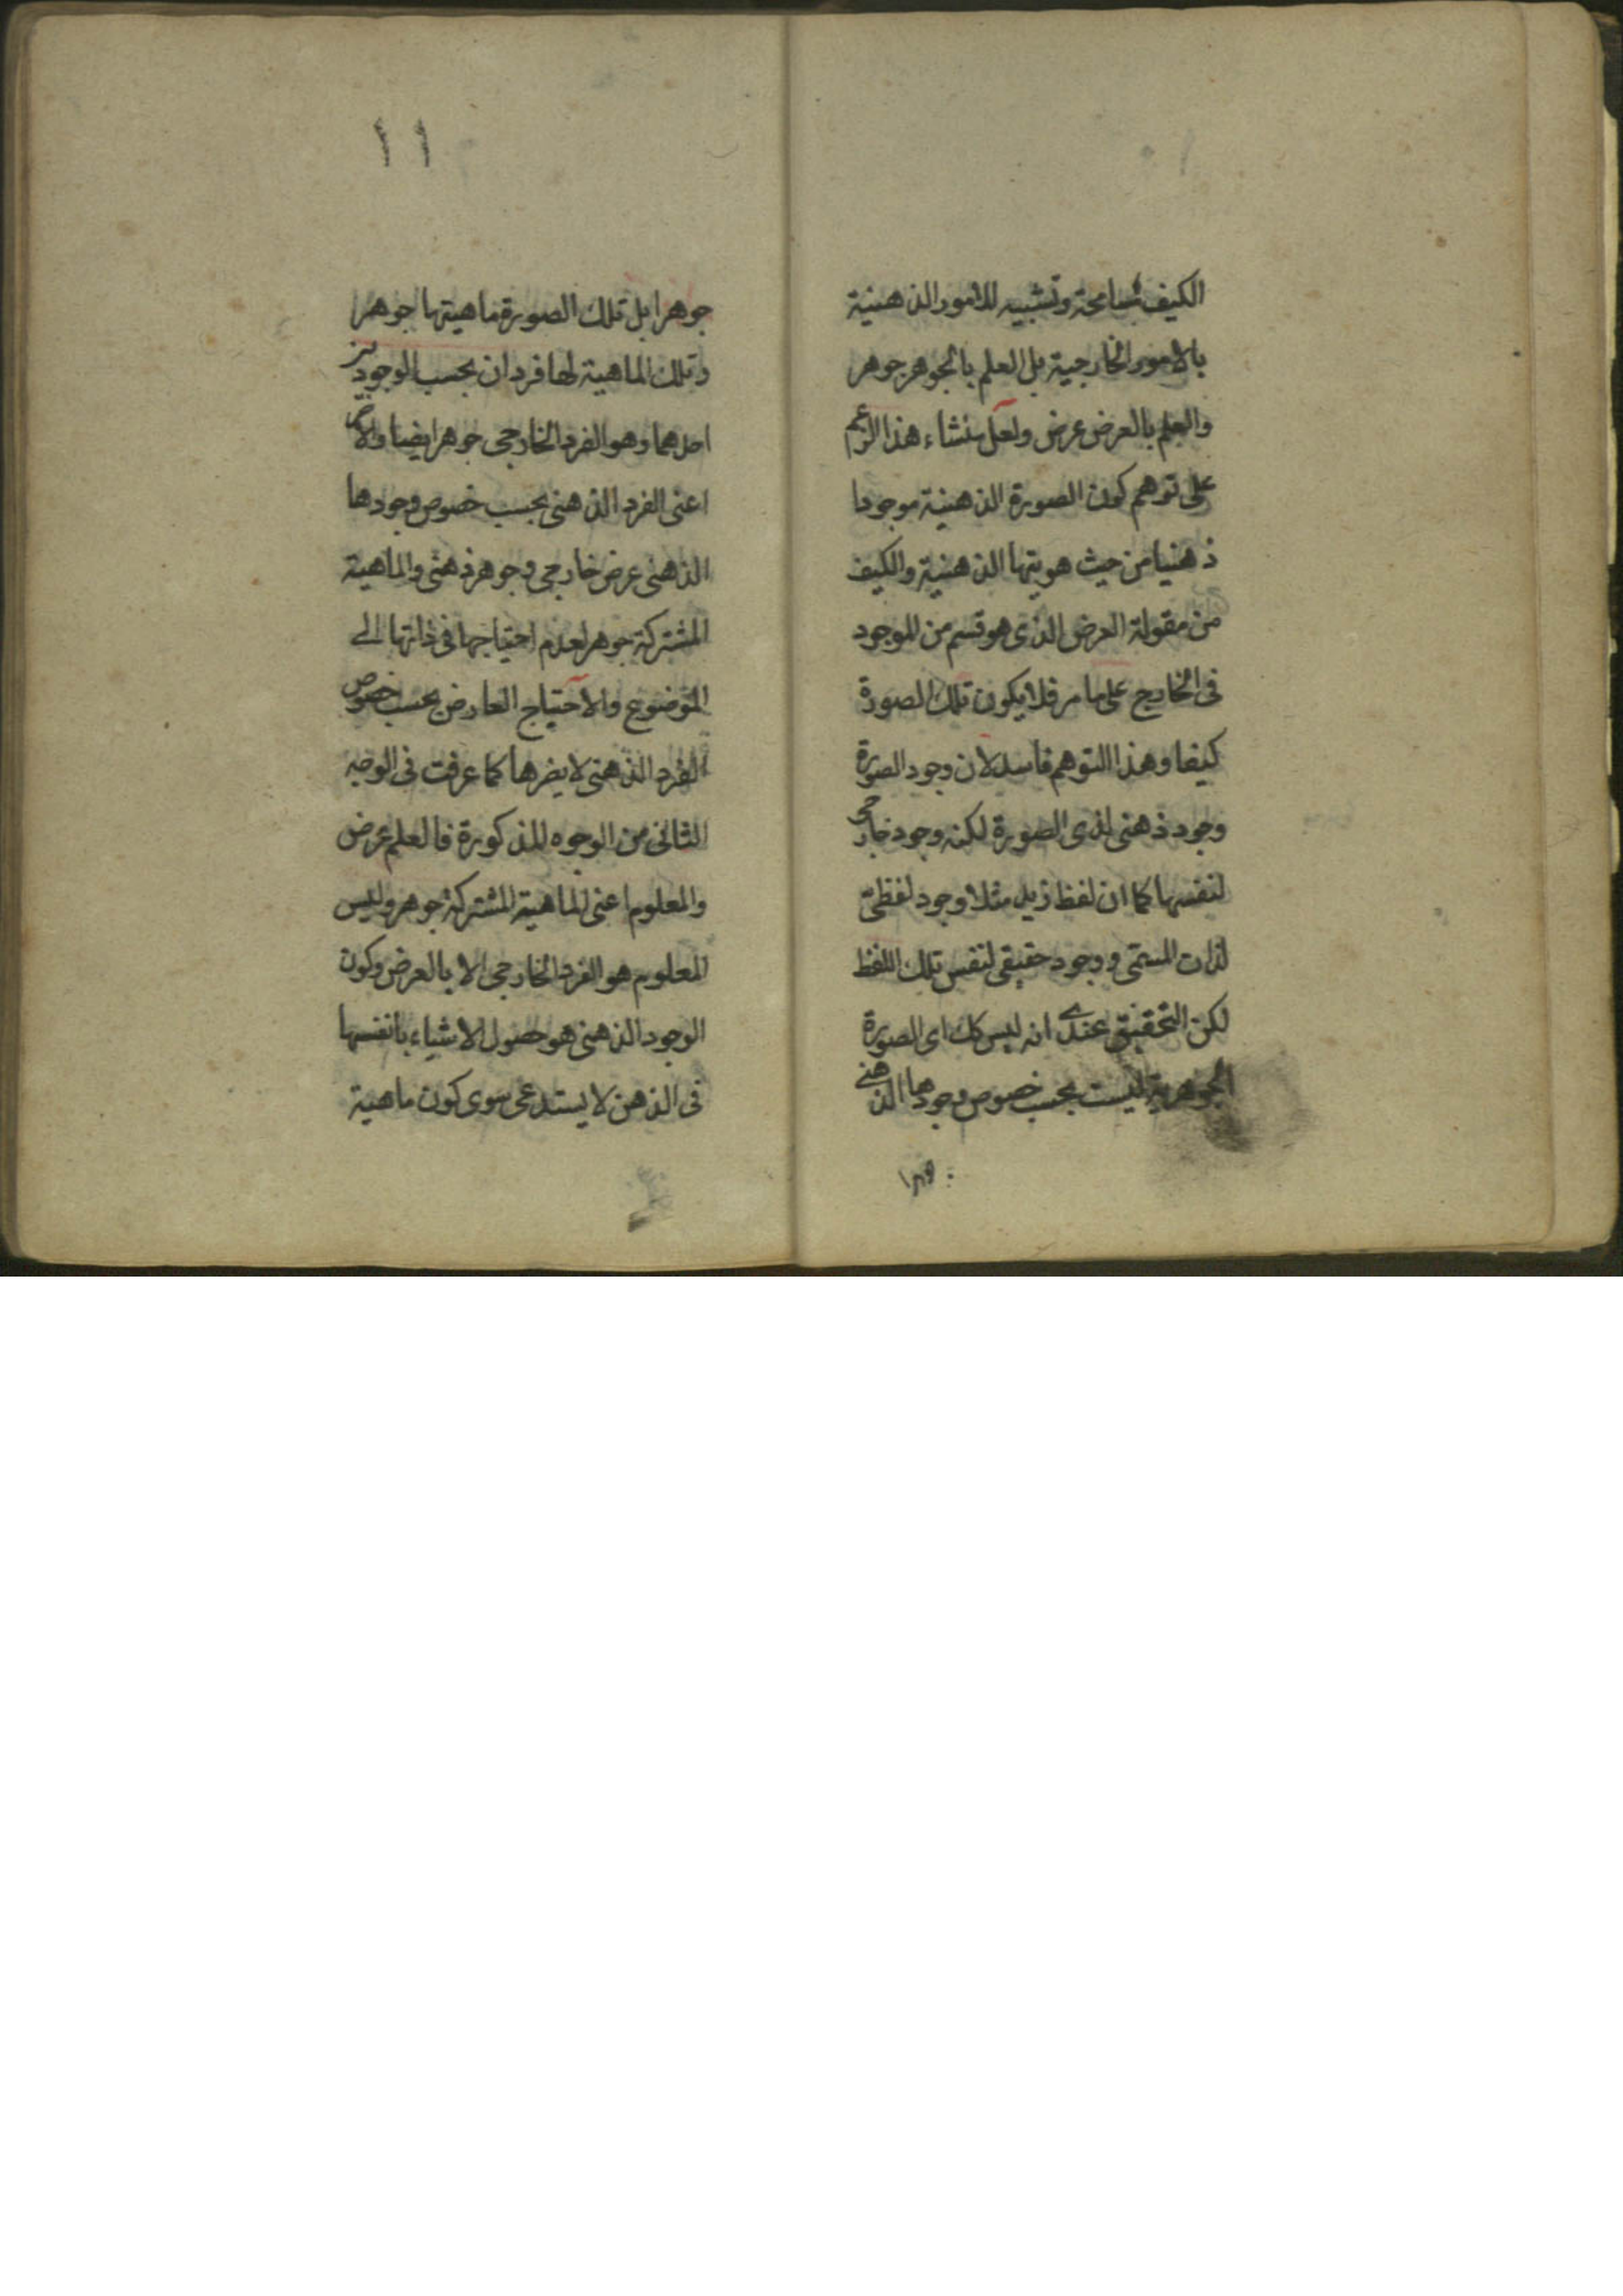 الكيف مسامحة وتشبيه للامور الذهنية
بالامور الخارجية بل العلم بالجوهر جوهر
والعلم بالعرض عرض ولعل منشاء هذا الزعم
على توهم كون الصورة الذهنية موجودا
ذهنيا من حيث هويتها الذهنية والكيف
من مقولة العرض الذى هو قسم من الموجود
فى الخارج على ما مر فلا يكون تلك الصورة
كيفا وهذا التوهم فاسد لان وجود الصورة
وجود ذهنى لذى الصورة لكنه وجود خارجى
لنفسها كما ان لفظ زيد مثلا وجود لفظى
لذات المسمى ووجود حقيقى لنفس تلك اللفظ
لكن التحقيق عندى انه ليس كك اى الصورة
الجوهرية ليست بحسب خصوص وجودها الذهنى
١١
جوهرا بل تلك الصورة ماهيتها جوهر
وتلك الماهية لها فردان بحسب الوجودين
احدهما وهو الفرد الخارجى جوهر ايضا والاخر
اعنى الفرد الذهنى بحسب خصوص وجودها
الذهنى عرض خارجى وجوهر ذهنى والماهية
المشتركة جوهر لعدم احتياجها فى ذاتها الى
الموضوع والاحتياج العارض بحسب خصوص
الفرد الذهنى لا يضرها كما عرفت فى الوجه
الثانى من الوجوه المذكورة فالعلم عرض
والمعلوم اعنى الماهية المشتركة جوهر وليس
المعلوم هو الفرد الخارجى الا بالعرض وكون
الوجود الذهنى هو حصول الاشياء بانفسها
فى الذهن لا يستدعى سوى كون ماهية